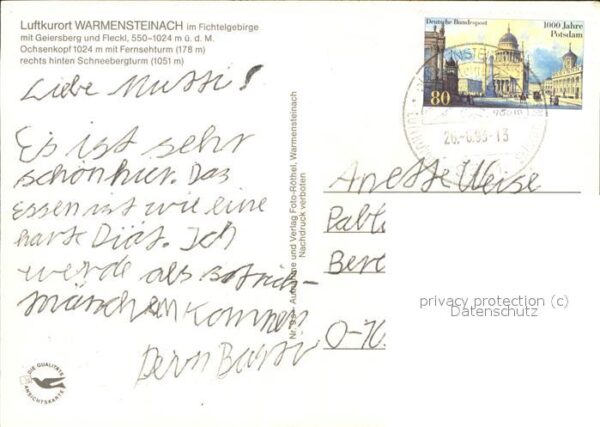 Luftkurort WARMENSTEINACH im Fichtelgebirge
mit Geiersberg und Fleckl, 550-1024 m ü. d. M.
Ochsenkopf 1024 m mit Fernsehturm (178 m)
rechts hinten Schneebergturm (1051 m)
Liebe Mutti!
Es ist sehr
schön hier. Das
Essen ist wie eine
harte Diät. Ich
werde als strich-
mänchen kommen
Dein
Nr. Aufnahme und Verlag Foto-Röthel, Warmensteinach
Nachdruck verboten
DIE QUALITÄTS
ANSICHTSKARTE
Deutsche Bundespost
1000 Jahre
Potsdam
80
26.-6.93-13
Anette Weise
Pabl
Ber
O-
privacy protection (c)
Datenschutz